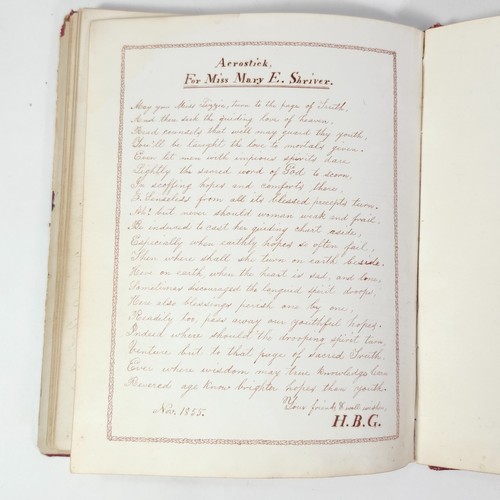 Acrostick,
For Miss Mary E. Shriver.
May you Miss Lizzie, turn to the page of Truth,
And then seek the guiding love of heaven,
Read counsels that well may guard thy youth,
You'll be taught the love to mortals given.
Even let men with impious spirits dare
Lightly the sacred word of God to scorn,
In scoffing hopes and comforts there,
& Senseless from all its blessed precepts turn.
Ah! but never should woman weak and frail,
Be induced to cast her guiding chart aside,
Especially when earthly hopes so often fail,
Then where shall she turn on earth beside.
Here on earth, when the heart is sad, and lone,
Sometimes discouraged the languid spirit droops,
Here also blessings perish one by one,
Readily too pass away our youthful hopes.
Indeed where should the drooping spirit turn,
Venture but to that page of sacred Truth.
Ever where wisdom may true knowledge
Revered age know brighter hopes than youth.
Your friend, & well wisher,
Nov. 1855.
H.B.G.